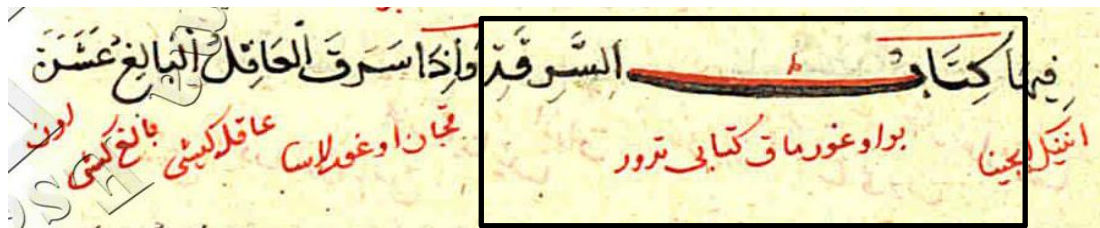 فِيهَا كِتَابُ السَّرِقَةِ وَاِذَا سَرَقَ الْعَاقِلُ الْبَالِغُ عَشَرَةَ
اننيك ايجيندا بو اوغورماق كتابى ترور قچان اوغورلاسا عاقل كيشى بالغ كيشى اون